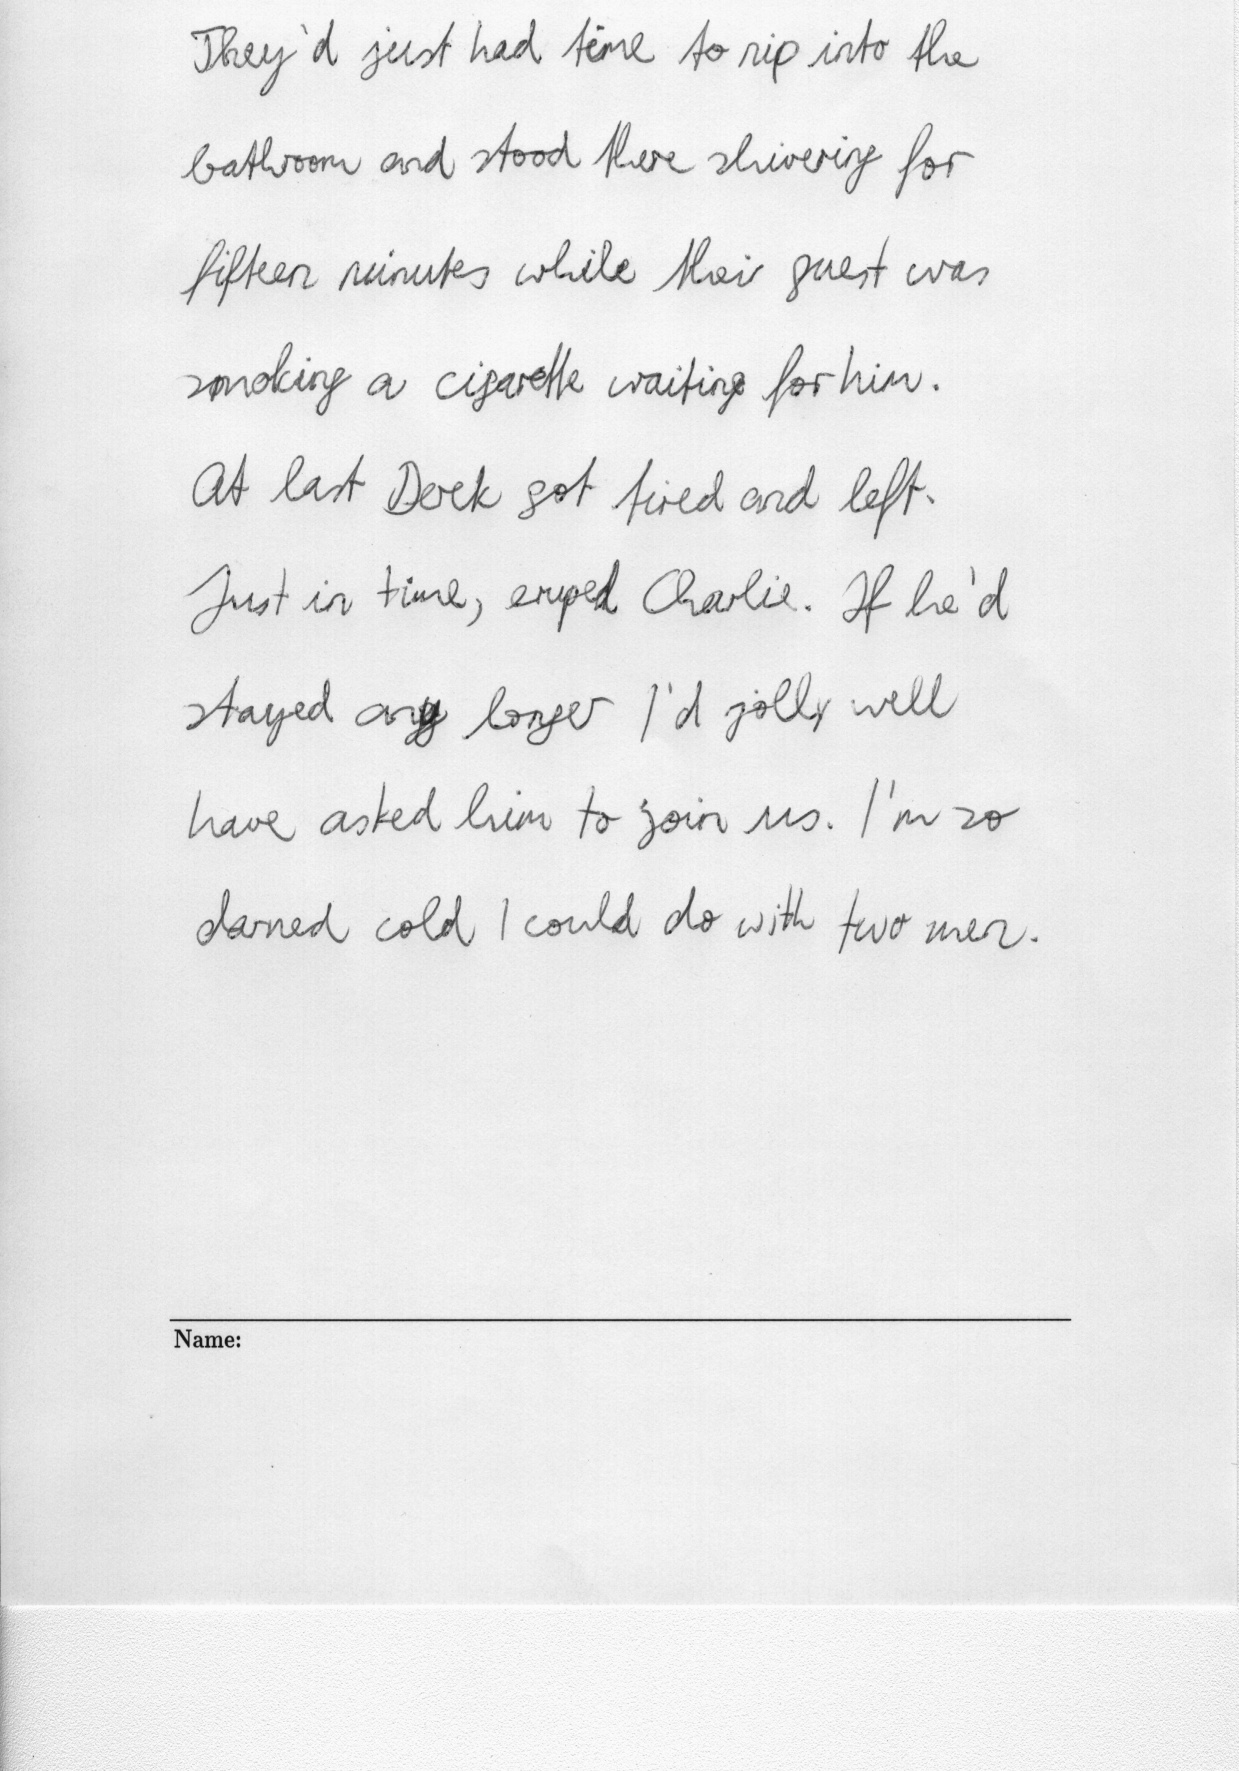 They'd just had time to nip into the
bathroom and stood there shivering for
fifteen minutes while their guest was
smoking a cigarette waiting for him.
At last Derek got tired and left.
Just in time, Charlie. If he'd
stayed any longer I'd jolly well
have asked him to join us. I'm so
darned cold I could do with two men.
Name: